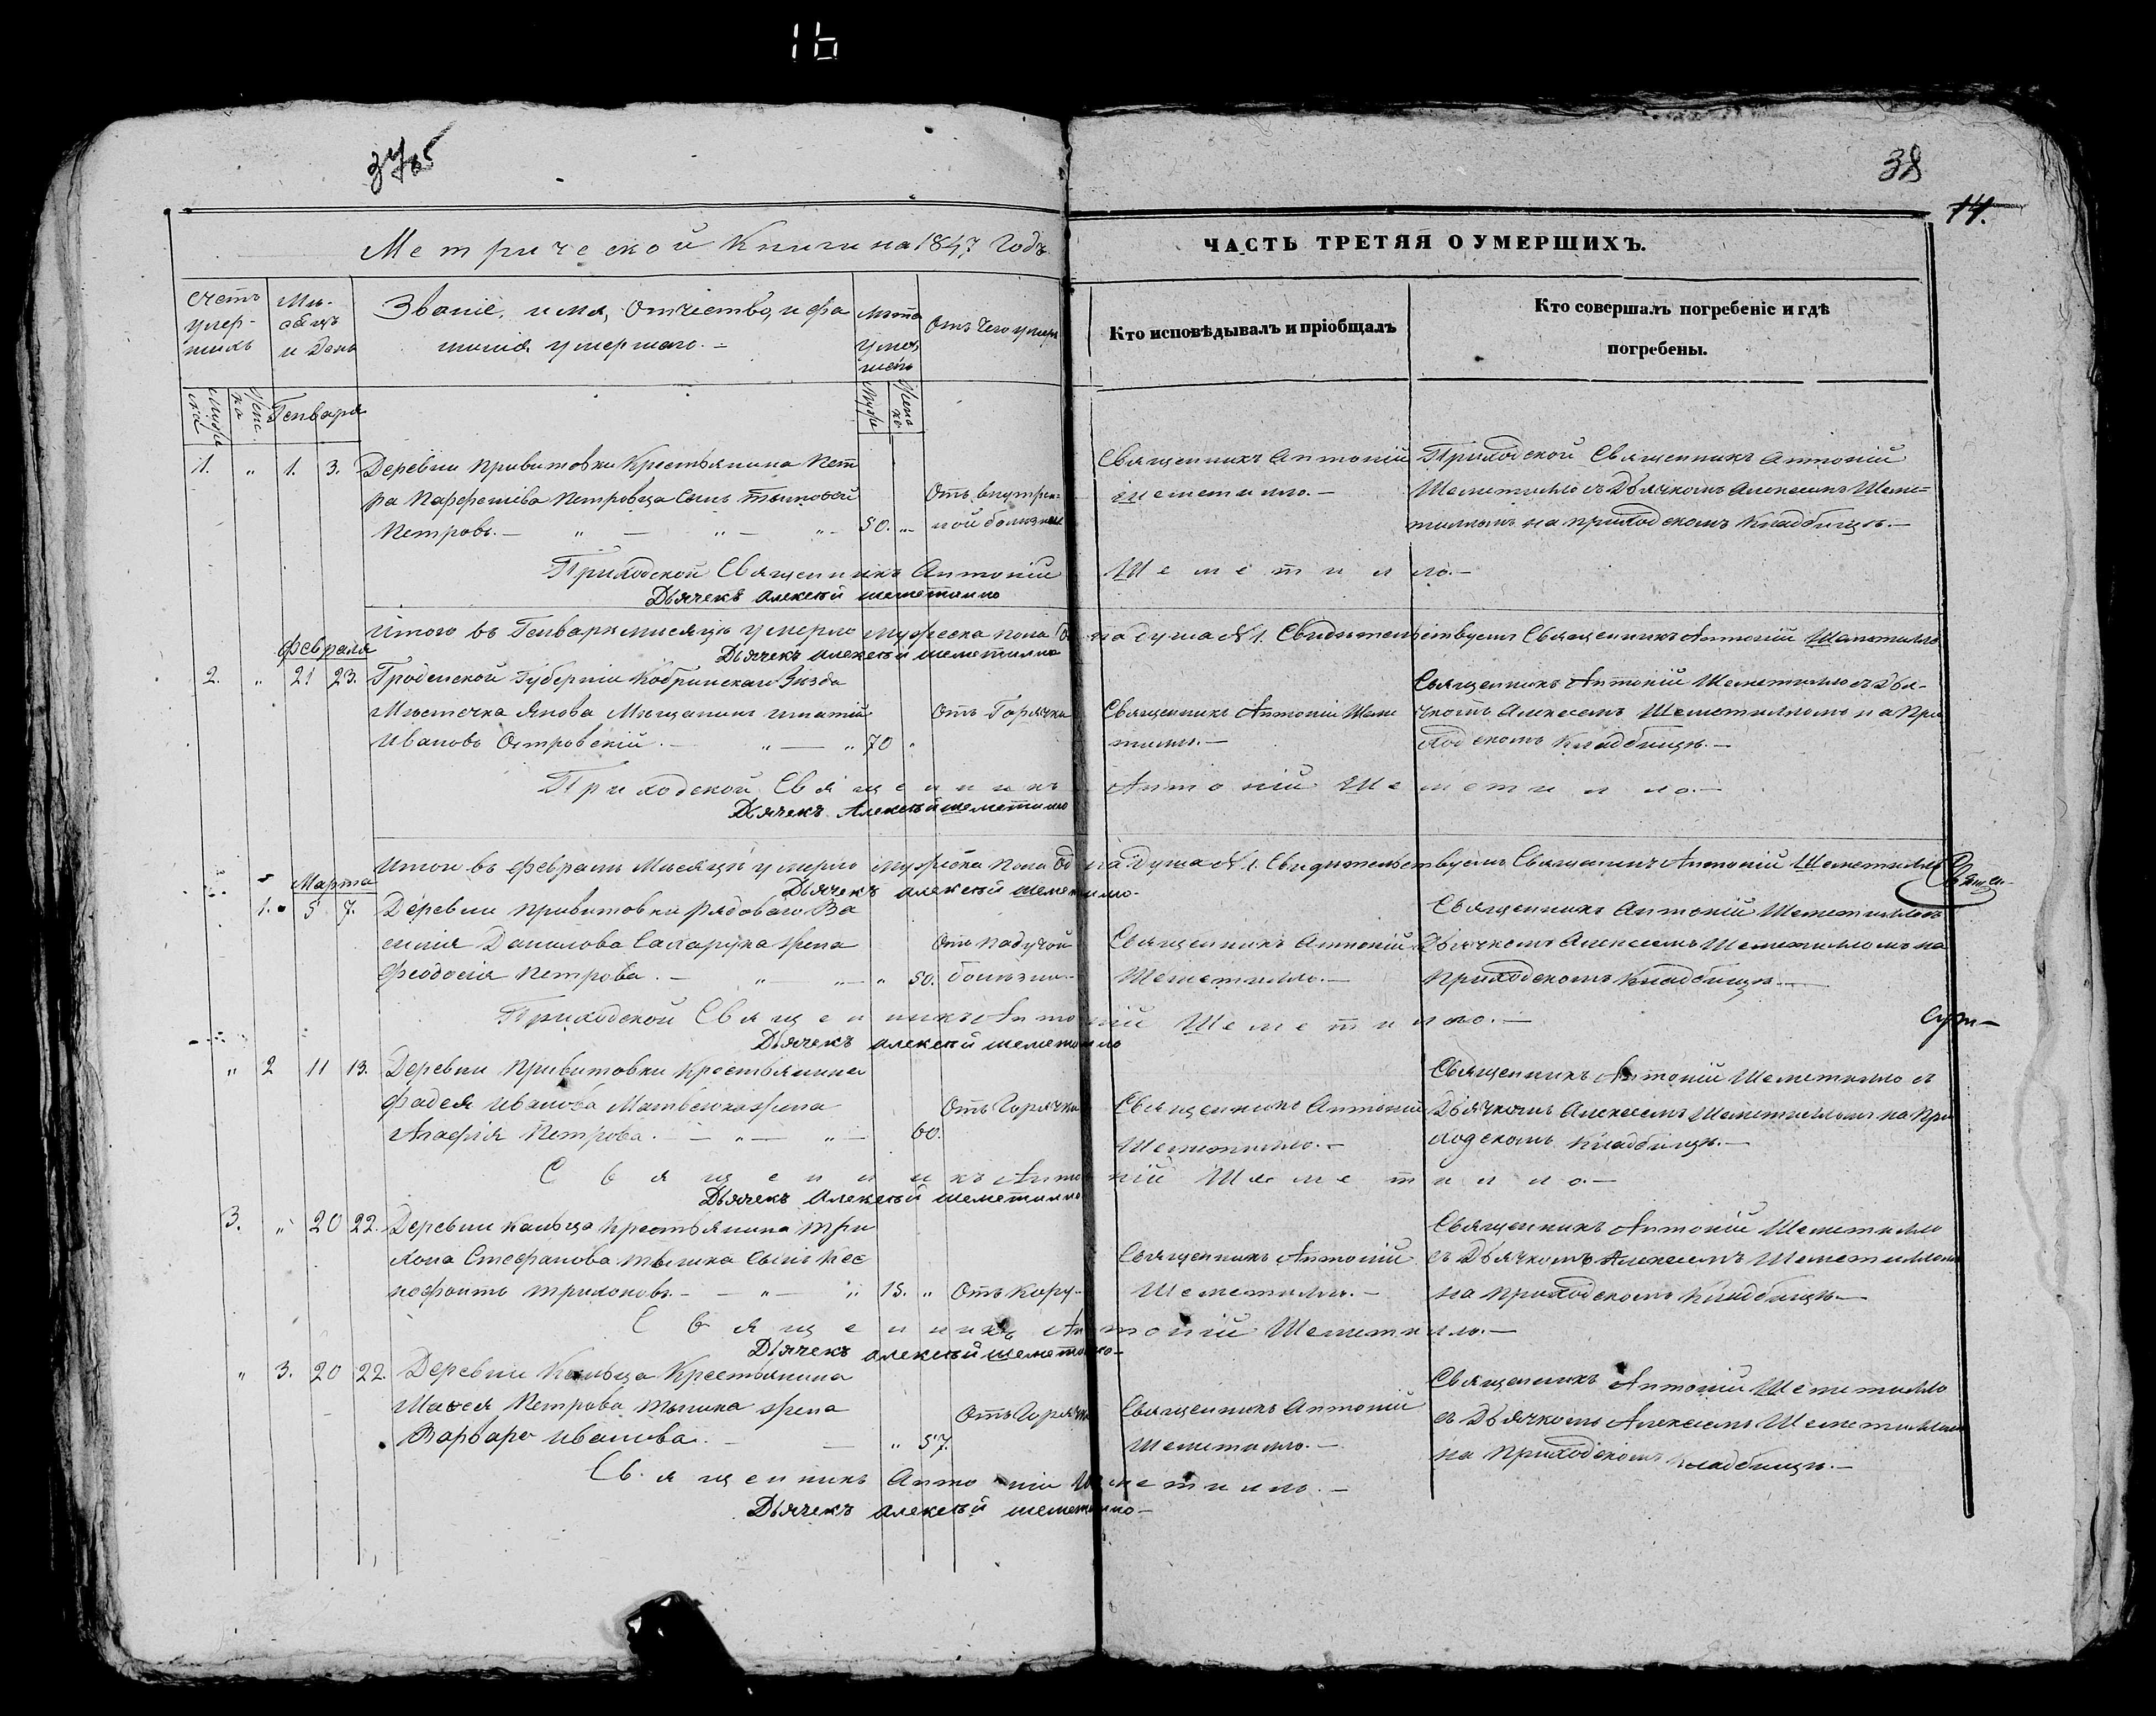 16
38
14.
Метрической Книги на 1847 Годъ
ЧАСТЬ ТРЕТЯЯ О УМЕРШИХЪ.
Счетъ умер-
шихъ
Мѣ-
сяцъ
и День
Званіе, имя, Отчество, и фа
милія умершаго. –
Лѣта
умер
шаго
Отъ чего умеръ
Кто исповѣдывалъ и пріобщалъ
Кто совершалъ погребеніе и гдѣ
погребены.
Генваря
1. " 1. 3. Деревни Привитовки Крестьянина Пет
ра Парфетіева Петровца Сынъ Тимофей
Петровъ. – 50. "
Отъ внутрен-
ной болезни
Священникъ Антоній
Шеметилло. –
Приходской Священникъ Антоній
Шеметилло съ Дьячкомъ Алексеемъ Шеме-
тилломъ на приходскомъ Кладбищѣ. –
Приходской Священникъ Антоній Шеметилло. –
Дьячекъ Алексей Шеметилло
Итого въ Генварѣ мѣсяцѣ умерло мужеска пола одна душа № 1. Свидѣтельствуемъ Священникъ Антоній Шеметилло
Дьячекъ Алексей Шеметилло
Февраля
2. " 21 23. Гроденской Губерніи Кобринскаго Уѣзда
Мѣстечка Янова Мещанинъ Игнатій
Ивановъ Островскій. – " 70 "
Отъ Горячки
Священникъ Антоній Шеме
тилло. –
Священникъ Антоній Шеметилло съ Дья-
чкомъ Алексеемъ Шеметилломъ на При
ходскомъ Кладбищѣ. –
Приходской Священникъ Антоній Шеметилло. –
Дьячекъ Алексей Шеметилло
Итого въ Февралѣ Мѣсяцѣ умерло мужеска пола одна душа № 1. Свидѣтельствуемъ Священникъ Антоній Шеметилло
Дьячекъ Алексей Шеметилло.
Священ-
Марта
1. 5 7. Деревни Привитовки Рядоваго Ва
силія Данилова Сахарука жена
Феодосія Петрова. – " 50.
Отъ падучой
болезни. –
Священникъ Антоній
Шеметилло. –
Священникъ Антоній Шеметилло съ
Дьячкомъ Алексеемъ Шеметилломъ на
Приходскомъ Кладбищѣ. –
Приходской Священникъ Антоній Шеметилло. –
Дьячекъ Алексей Шеметилло
" 2 11 13. Деревни Привитовки Крестьянина
Фадея Иванова Матвеюка жена
Агафія Петрова. – 60.
Отъ Горячки
Священникъ Антоній
Шеметилло. –
Священникъ Антоній Шеметилло съ
Дьячкомъ Алексеемъ Шеметилломъ на При
ходскомъ Кладбищѣ. –
Священникъ Антоній Шеметилло. –
Дьячекъ Алексей Шеметилло
3. " 20 22. Деревни Кольца Крестьянина Три
хона Стефанова Тылика Сынъ Ксе
нофонтъ Трихоновъ. – " 15. "
Отъ Кору-
Священникъ Антоній
Шеметилло. –
Священникъ Антоній Шеметилло
съ Дьячкомъ Алексеемъ Шеметилломъ
на Приходскомъ Кладбищѣ. –
Священникъ Антоній Шеметилло. –
Дьячекъ Алексей Шеметилло –
" 3. 20 22. Деревни Кольца Крестьянина
Петрова Тылика жена
Варвара Иванова. – " 57.
Отъ Горячки
Священникъ Антоній
Шеметилло. –
Священникъ Антоній Шеметилло
съ Дьячкомъ Алексеемъ Шеметилломъ
на Приходскомъ Кладбищѣ. –
Священникъ Антоній Шеметилло. –
Дьячекъ Алексей Шеметилло –